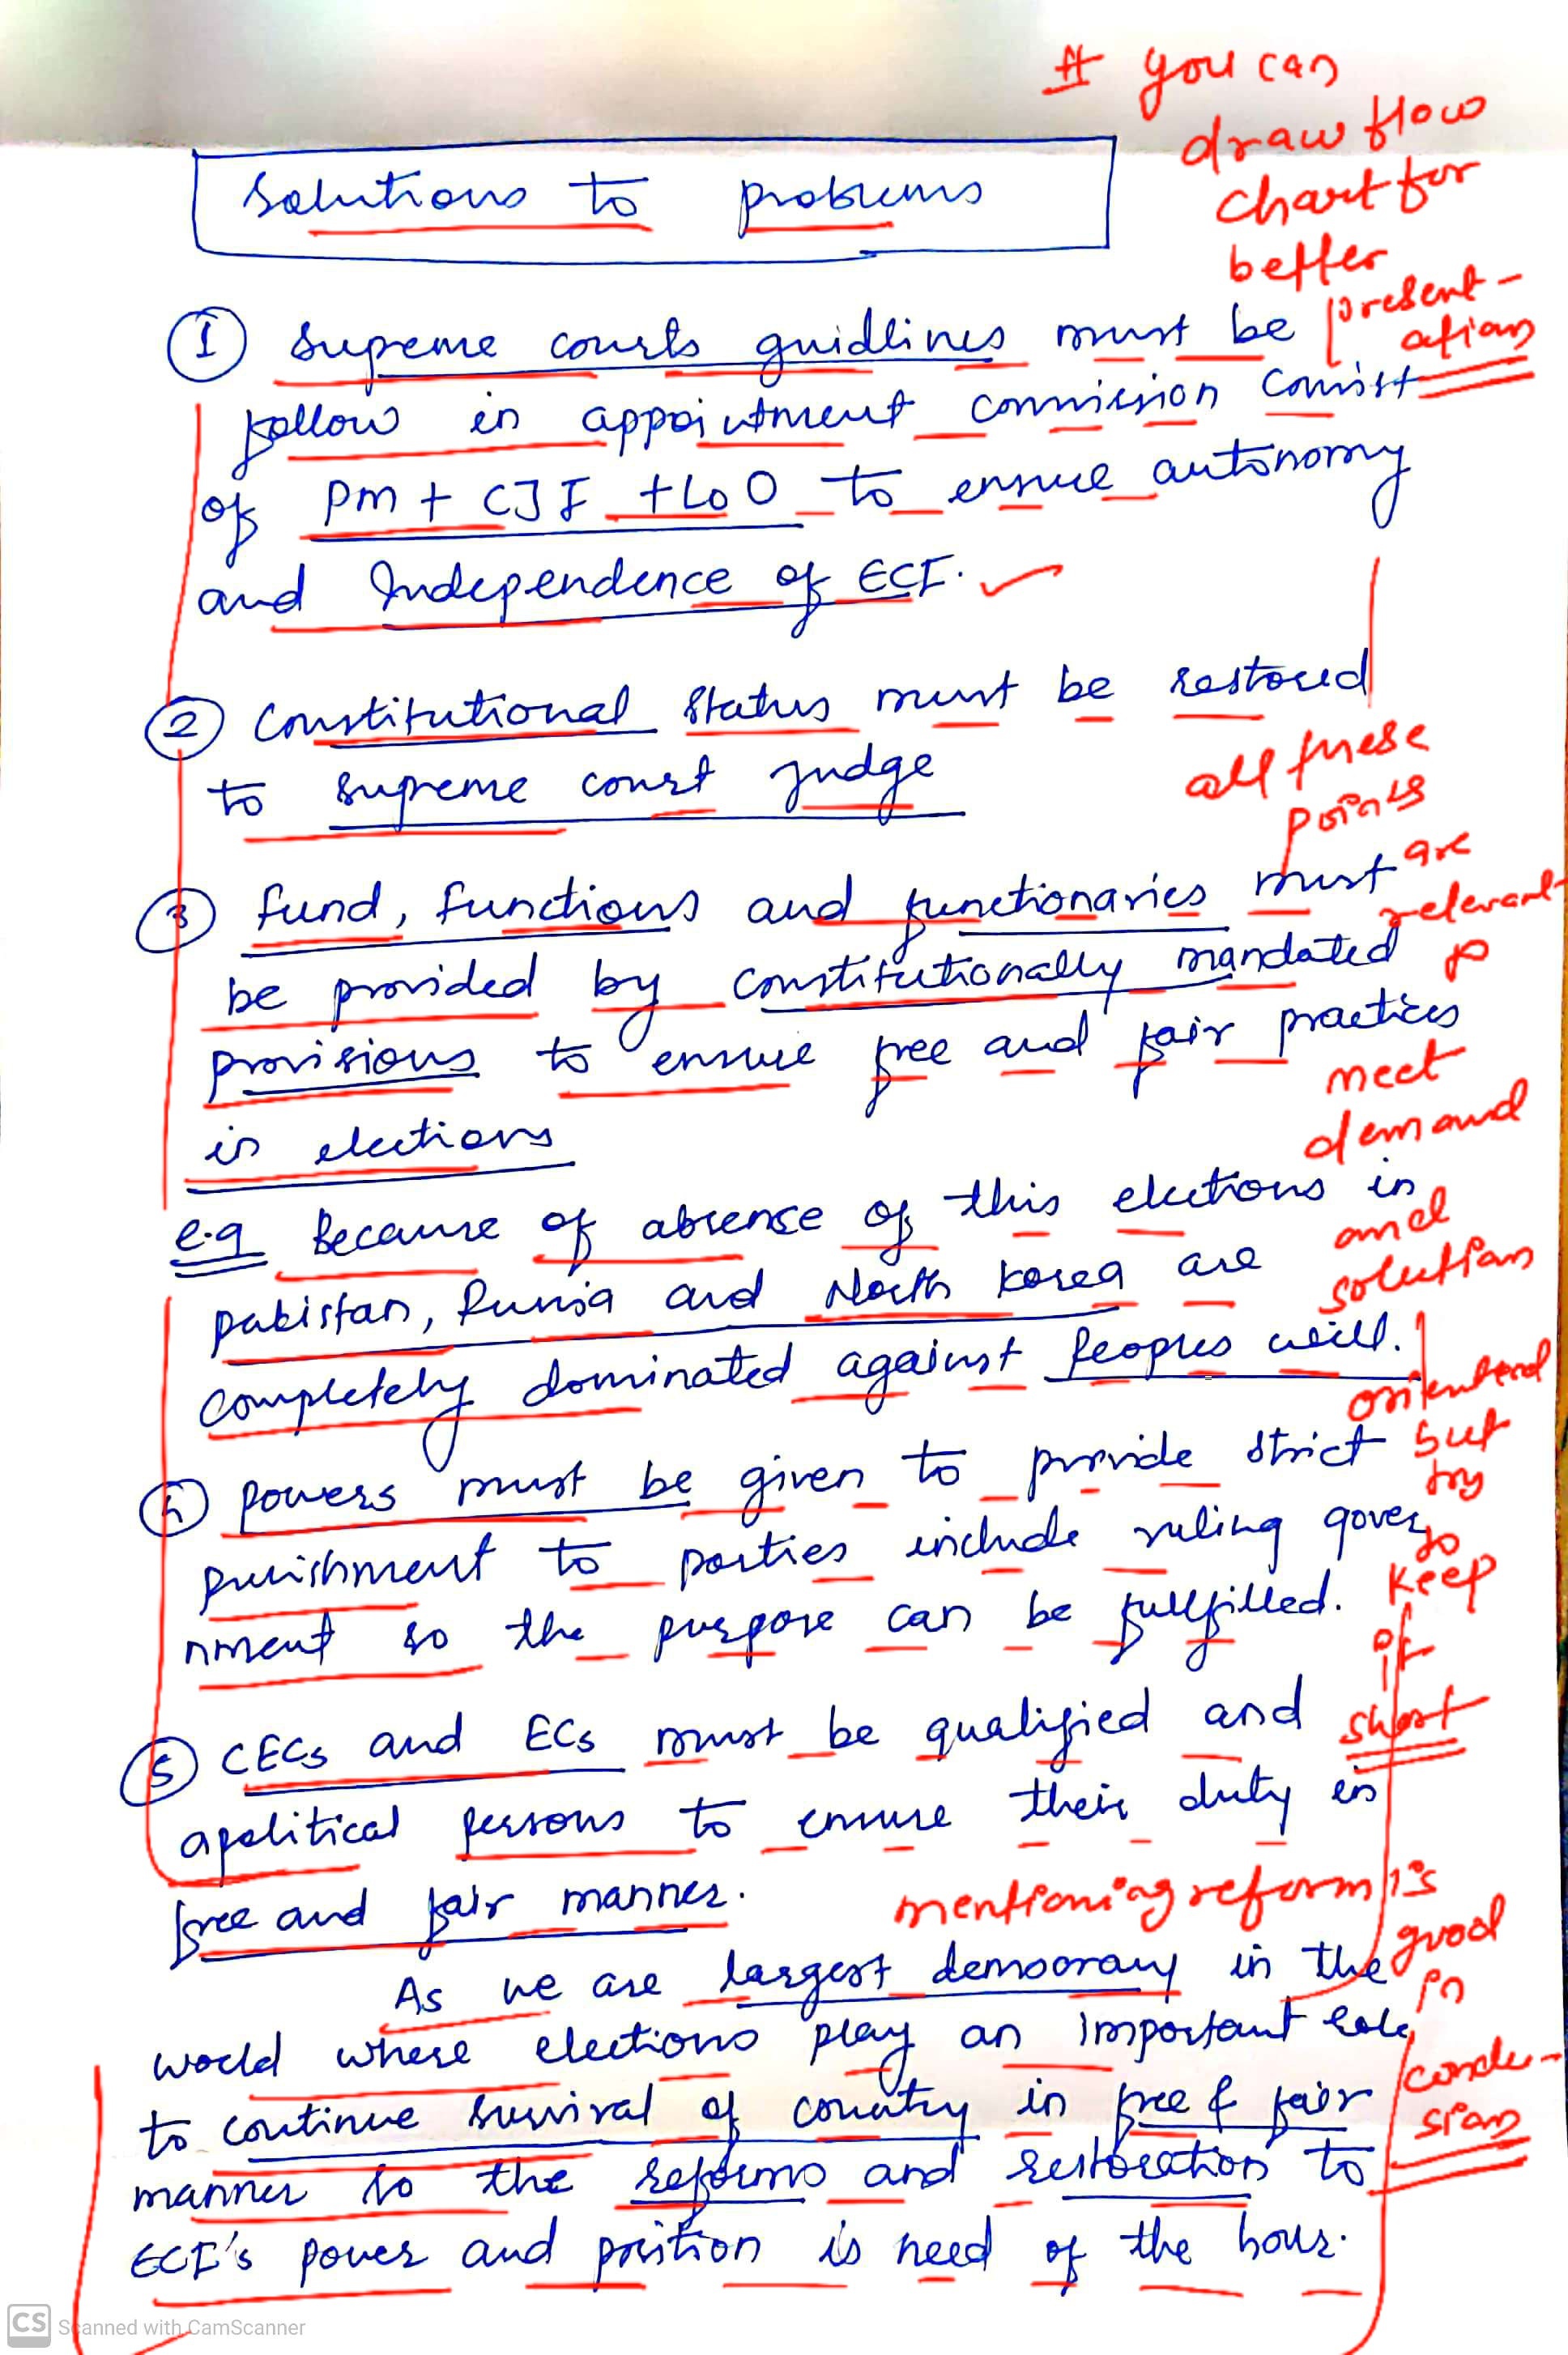 # you can
draw flow
chart for
better
present-
ation
Solutions to problems
① Supreme courts guidlines must be
follow in appointment commission consist
of PM + CJI + LoO to ensure autonomy
and Independence of ECI.
② Constitutional status must be restored
to supreme court judge
all these
points
are
relevant
to
meet
demand
and
solution
oriented
but
try
to
keep
it
short
③ fund, functions and functionaries must
be provided by constitutionally mandated
provisions to ensure free and fair practices
in elections
e.g Because of absense of this elections in
pakistan, Russia and North korea are
completely dominated against Peoples will.
④ powers must be given to provide strict
punishment to parties include ruling gover
nment so the purpose can be fullfilled.
⑤ CECs and ECs must be qualified and
apolitical persons to ensure their duty in
free and fair manner.
mentioning reform is
good
in
conclu-
sion
As we are largest democracy in the
world where elections play an important role
to continue survival of country in free & fair
manner so the reforms and restoration to
ECI's power and position is need of the hour.
CS Scanned with CamScanner